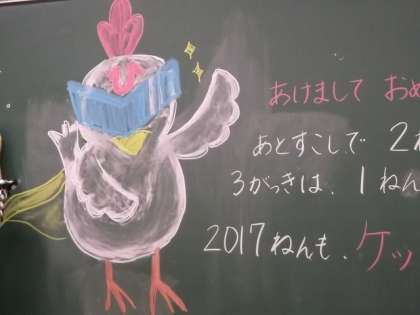 あけまして おめ
あとすこしで 2ね
3がっきは、1ねん
2017ねんも、ケッ